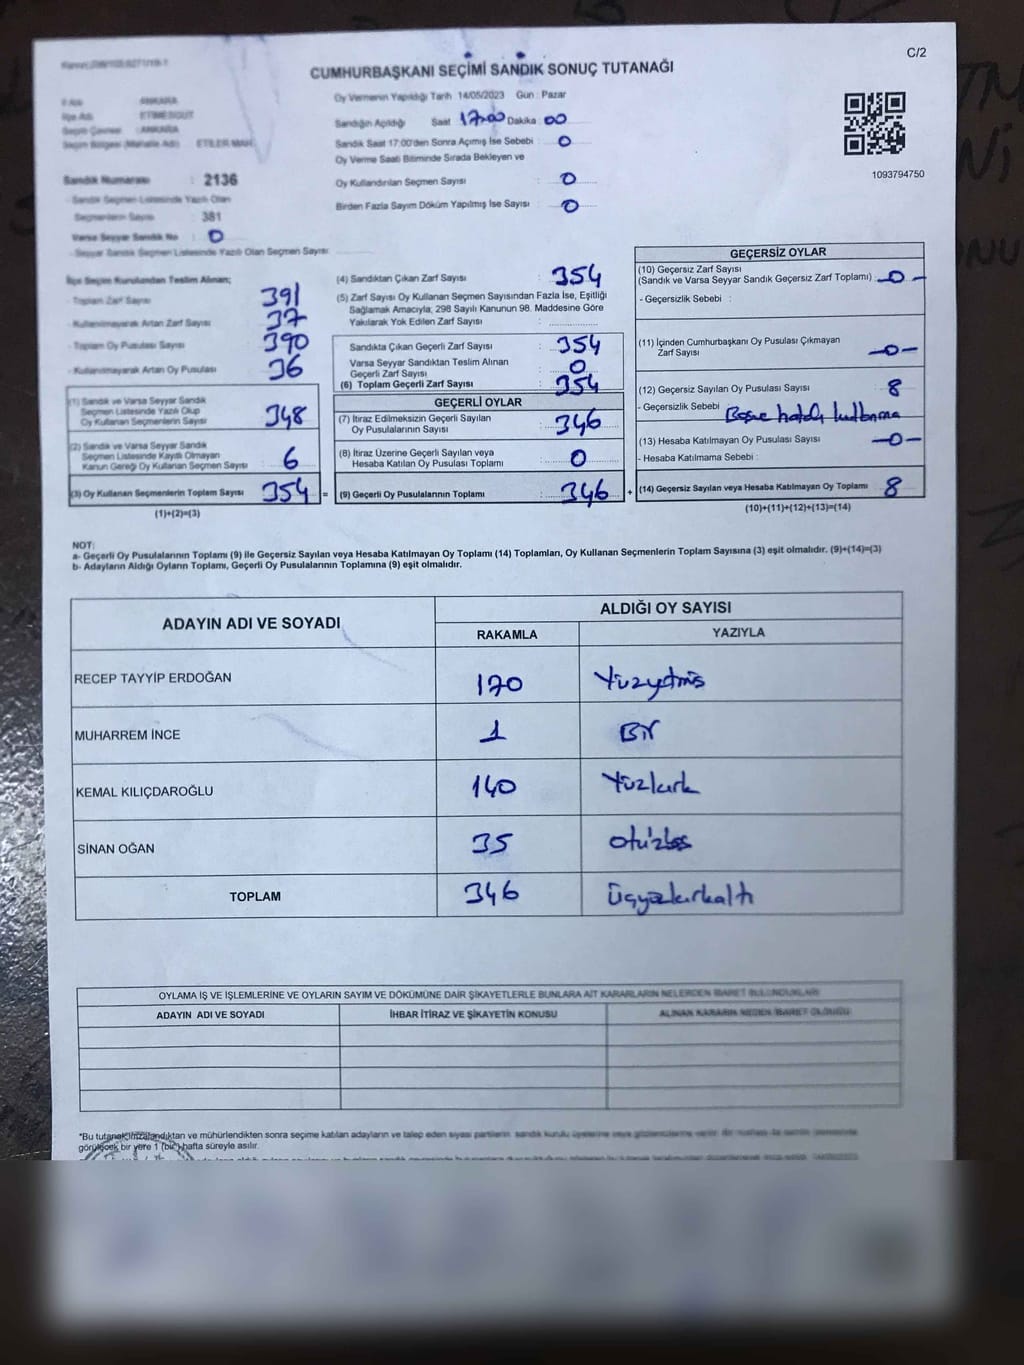 C/2
CUMHURBAŞKANI SEÇİMİ SANDIK SONUÇ TUTANAĞI
Oy Vermenin Yapıldığı Tarih 14/05/2023 Gün : Pazar
Sandığın Açıldığı Saat 17:00 Dakika : 00
Sandık Saat 17:00'den Sonra Açımış İse Sebebi : 0
Oy Verme Saati Bitiminde Sırada Bekleyen ve
Oy Kullandırılan Seçmen Sayısı : 0
Birden Fazla Sayım Döküm Yapılmış İse Sayısı : 0
1093794750
ANKARA
ETİMESGUT
ANKARA
ETİLER MAH.
Sandık Numarası : 2136
- Sandık Seçmen Listesinde Yazılı Olan
Seçmenlerin Sayısı 381
Varsa Seyyar Sandık No : 0
- Seyyar Sandık Seçmen Listesinde Yazılı Olan Seçmen Sayısı
İlçe Seçim Kurulundan Teslim Alınan;
- Toplam Zarf Sayısı 391
- Kullanılmayarak Artan Zarf Sayısı 37
- Toplam Oy Pusulası Sayısı 390
- Kullanılmayarak Artan Oy Pusulası 36
(1) Sandık ve Varsa Seyyar Sandık
Seçmen Listesinde Yazılı Olup
Oy Kullanan Seçmenlerin Sayısı 348
(2) Sandık ve Varsa Seyyar Sandık
Seçmen Listesinde Kayıtlı Olmayan
Kanun Gereği Oy Kullanan Seçmen Sayısı 6
(3) Oy Kullanan Seçmenlerin Toplam Sayısı 354 =
(1)+(2)=(3)
(4) Sandıktan Çıkan Zarf Sayısı : 354
(5) Zarf Sayısı Oy Kullanan Seçmen Sayısından Fazla İse, Eşitliği
Sağlamak Amacıyla; 298 Sayılı Kanunun 98. Maddesine Göre
Yakılarak Yok Edilen Zarf Sayısı :
Sandıkta Çıkan Geçerli Zarf Sayısı : 354
Varsa Seyyar Sandıktan Teslim Alınan
Geçerli Zarf Sayısı : 0
(6) Toplam Geçerli Zarf Sayısı : 354
GEÇERLİ OYLAR
(7) İtiraz Edilmeksizin Geçerli Sayılan
Oy Pusulalarının Sayısı : 346
(8) İtiraz Üzerine Geçerli Sayılan veya
Hesaba Katılan Oy Pusulası Toplamı : 0
(9) Geçerli Oy Pusulalarının Toplamı : 346 +
GEÇERSİZ OYLAR
(10) Geçersiz Zarf Sayısı
(Sandık ve Varsa Seyyar Sandık Geçersiz Zarf Toplamı) -0-
- Geçersizlik Sebebi :
(11) İçinden Cumhurbaşkanı Oy Pusulası Çıkmayan
Zarf Sayısı -0-
(12) Geçersiz Sayılan Oy Pusulası Sayısı 8
- Geçersizlik Sebebi hatalı kullanma
(13) Hesaba Katılmayan Oy Pusulası Sayısı -0-
- Hesaba Katılmama Sebebi :
(14) Geçersiz Sayılan veya Hesaba Katılmayan Oy Toplamı 8
(10)+(11)+(12)+(13)=(14)
NOT:
a- Geçerli Oy Pusulalarının Toplamı (9) ile Geçersiz Sayılan veya Hesaba Katılmayan Oy Toplamı (14) Toplamları, Oy Kullanan Seçmenlerin Toplam Sayısına (3) eşit olmalıdır. (9)+(14)=(3)
b- Adayların Aldığı Oyların Toplamı, Geçerli Oy Pusulalarının Toplamına (9) eşit olmalıdır.
ADAYIN ADI VE SOYADI ALDIĞI OY SAYISI
RAKAMLA YAZIYLA
RECEP TAYYİP ERDOĞAN 170 Yüzyetmiş
MUHARREM İNCE 1 Bir
KEMAL KILIÇDAROĞLU 140 Yüzkırk
SİNAN OĞAN 35 otuzbeş
TOPLAM 346 Üçyüzkırkaltı
OYLAMA İŞ VE İŞLEMLERİNE VE OYLARIN SAYIM VE DÖKÜMÜNE DAİR ŞİKAYETLERLE BUNLARA AİT KARARLARIN NELERDEN İBARET BULUNDUKLARI
ADAYIN ADI VE SOYADI İHBAR İTİRAZ VE ŞİKAYETİN KONUSU ALINAN KARARIN NEDEN İBARET OLDUĞU
*Bu tutanak imzalandıktan ve mühürlendikten sonra seçime katılan adayların ve talep eden siyasi partilerin
görülecek bir yere 1 (bir) hafta süreyle asılır.